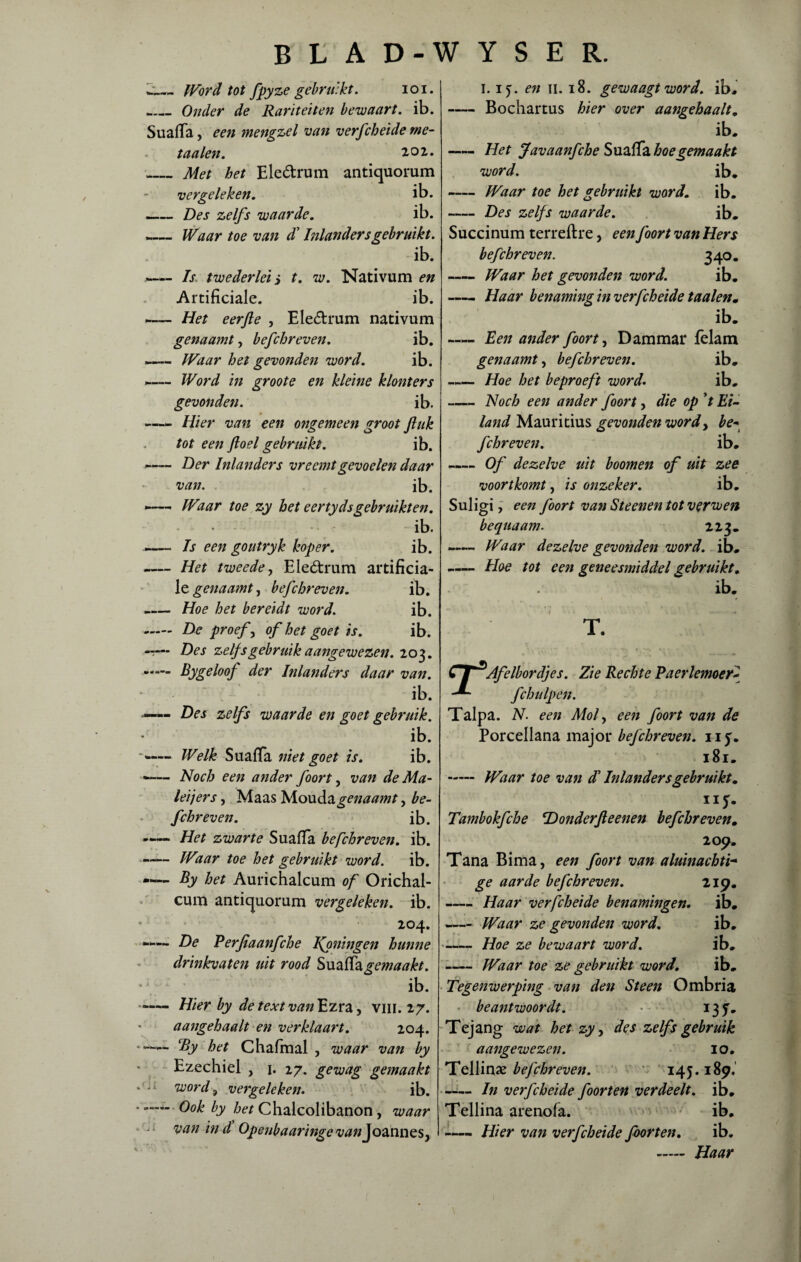 BLAD-WYSER.
—— Word tot ſpyze gebruikt. 101.
—— Onder de Rariteiten bewaart. ib.
Suaſſa, een mengzel van verſcheide me-
taalen. 202.
—— Met het Electrum antiquorum
vergeleken. ib.
—— Des zelfs waarde. ib.
—— Waar toe van d' Inlanders gebruikt.
ib.
—— Is twederlei; t. w. Nativum en
Artificiale. ib.
—— Het eerſte, Electrum nativum
genaamt, beſchreven. ib.
—— Waar het gevonden word. ib.
—— Word in groote en kleine klonters
gevonden. ib.
—— Hier van een ongemeen groot ſtuk
tot een ſtoel gebruikt. ib.
—— Der Inlanders vreemt gevoelen daar
van. ib.
—— Waar toe zy het eertyds gebruikten.
ib.
—— Is een goutryk koper. ib.
—— Het tweede, Electrum artificia-
le genaamt, beſchreven. ib.
—— Hoe het bereidt word. ib.
—— De proef, of het goet is. ib.
—— Des zelfs gebruik aangewezen. 203.
—— Bygeloof der Inlanders daar van.
ib.
—— Des zelfs waarde en goet gebruik.
ib.
—— Welk Suaſſa niet goet is. ib.
—— Noch een ander ſoort, van de Ma-
leijers, Maas Mouda genaamt, be-
ſchreven. ib.
—— Het zwarte Suaſſa beſchreven. ib.
—— Waar toe het gebruikt word. ib.
—— By het Aurichalcum of Orichal-
cum antiquorum vergeleken. ib.
204.
—— De Perſiaanſche Koningen hunne
drinkvaten uit rood Suaſſa gemaakt.
ib.
—— Hier by de text van Ezra, VIII. 27.
aangehaalt en verklaart. 204.
—— By het Chaſmal, waar van by
Ezechiel, I. 27. gewag gemaakt
word, vergeleken. ib.
—— Ook by het Chalcolibanon, waar
van in d' Openbaaringe van Joannes,
I. 15. en II. 18. gewaagt word. ib.
—— Bochartus hier over aangehaalt.
ib.
—— Het Javaanſche Suaſſa hoe gemaakt
word. ib.
—— Waar toe het gebruikt word. ib.
—— Des zelfs waarde. ib.
Succinum terreſtre, een ſoort van Hers
beſchreven. 340.
—— Waar het gevonden word. ib.
—— Haar benaming in verſcheide taalen.
ib.
—— Een ander ſoort, Dammar ſelam
genaamt, beſchreven. ib.
—— Hoe het beproeft word. ib.
—— Noch een ander ſoort, die op 't Ei-
land Mauritius gevonden word, be-
ſchreven. ib.
—— Of dezelve uit boomen of uit zee
voortkomt, is onzeker. ib.
Suligi, een ſoort van Steenen tot verwen
bequaam. 223.
—— Waar dezelve gevonden word. ib.
—— Hoe tot een geneesmiddel gebruikt.
ib.
T.
Tafelbordjes. Zie Rechte Paerlemoer-
ſchulpen.
Talpa. N. een Mol, een ſoort van de
Porcellana major beſchreven. 115.
181.
—— Waar toe van d' Inlanders gebruikt.
115.
Tambokſche Donderſteenen beſchreven.
209.
Tana Bima, een ſoort van aluinachti-
ge aarde beſchreven. 219.
—— Haar verſcheide benamingen. ib.
—— Waar ze gevonden word. ib.
—— Hoe ze bewaart word. ib.
—— Waar toe ze gebruikt word. ib.
Tegenwerping van den Steen Ombria
beantwoordt. 135.
Tejang wat het zy, des zelfs gebruik
aangewezen. 10.
Tellinæ beſchreven. 145. 189.
—— In verſcheide ſoorten verdeelt. ib.
Tellina arenoſa. ib.
—— Hier van verſcheide ſoorten. ib.
—— Haar